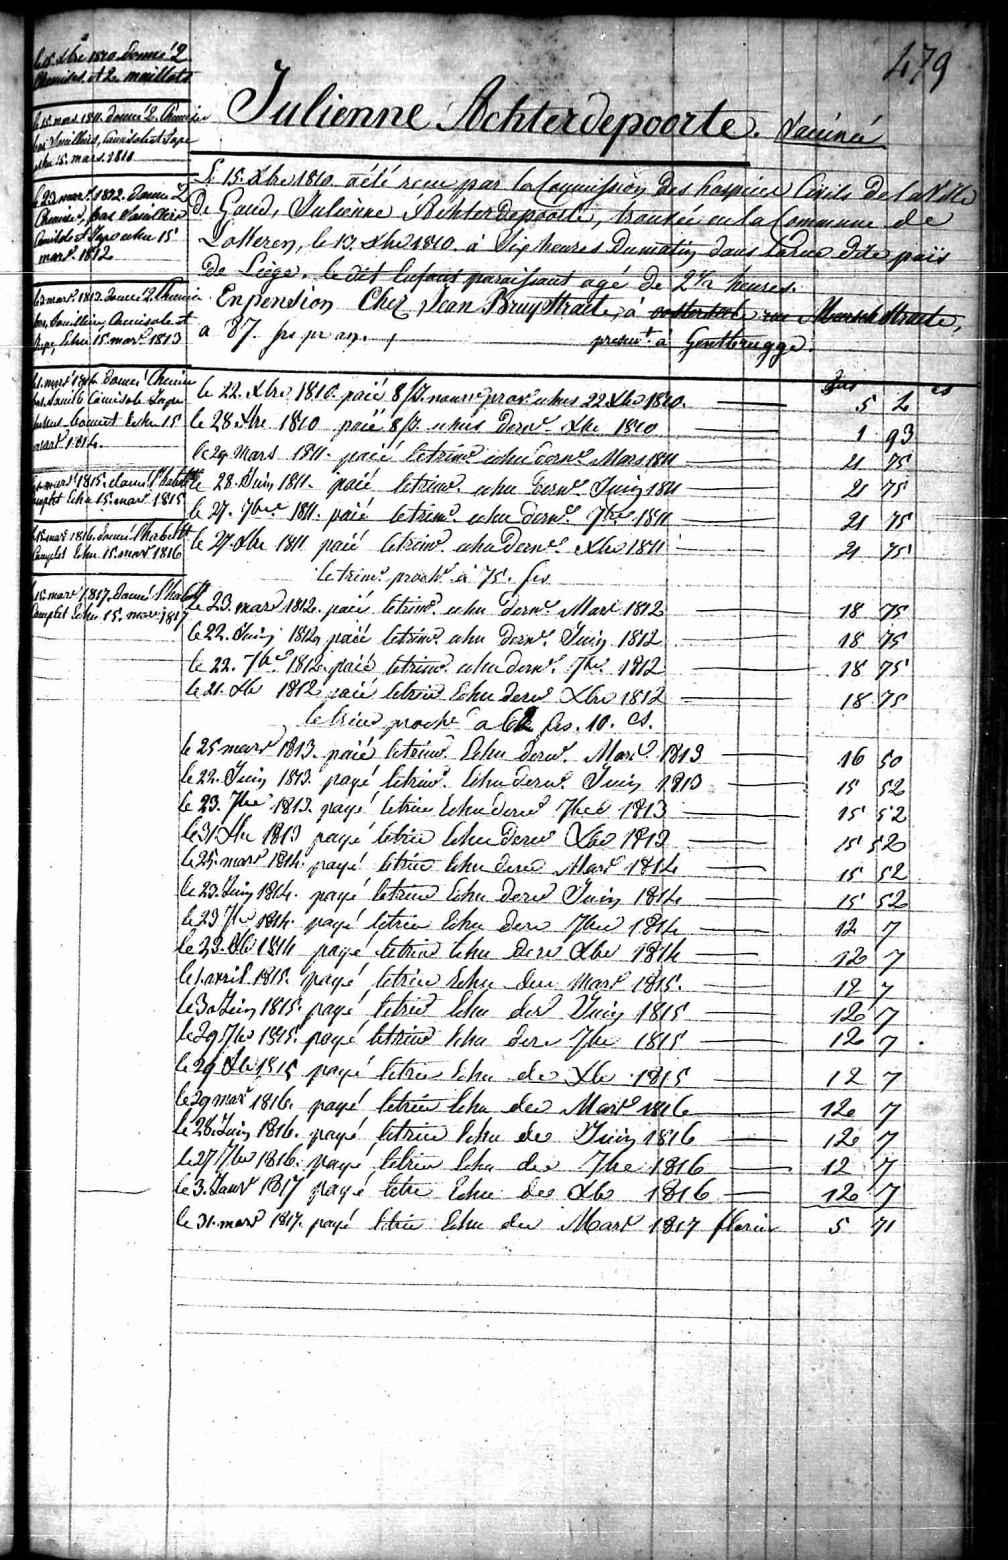 479
Julienne Achterdepoorte. Vaccinée
Le 15. Xbre 1810. a été reçu par la Commission des hospices Civils de la Ville
de Gand, Julienne Achterdepoorte, trouvée en la Commune de
Lokeren, le 13 Xbre 1810. à Sept heures du matin dans la rue dite païs
de Liège. le dit Enfant paraissant agé de 2 1/2 heures.
En pension Chez Jean Bruystraete, à
a 87. frs pr an. présent à Gentbrugge.
le 15 Xbre 1810. donné 2
Chemises et 2 maillots
le 15 mars 1811. donné 2 Chemises
bas Souilliers, Camisole et Jupe
echu 15. mars. 1811
le 23 mars 1812. donné 2
Camisole et Jupe echu 15
mars. 1812
le mars 1813. donné 2. Chemise
bas, Souilliers, Camisole et
Jupe, Echu 15. mars. 1813
mars 1814. donné Chemise
bas Camisole Jupe
bonnet Echu 15
mars 1814.
mars 1815. donné l'habillt
complet Echu 15. mars 1815
le 15. mars 1816. donné l'habillt
Complet Echu 15. mars 1816
le 15. mars 1817. donné l'habillt
Complet Echu 15. mars. 1817
frs cs
le 22. Xbre 1810. paié echus 22 Xbre 1810. 5 2
le 28 Xbre 1810 paié echus dernr. Xbre 1810 1 93
le 29 Mars 1811. paié le trimr. echu dernr. Mars 1811 21 75
le 28 Juin 1811. paié le trimr. echu dernr. Juin 1811 21 75
le 27. 7bre 1811. paié le trimr. echu dernr. 7bre 1811 21 75
le 27 Xbre 1811 paié le trimr. echu dernr. Xbre 1811 21 75
le trimr. prochr. à 75. frs
le 23. mars 1812. paié le trimr. echu dernr. Mars 1812 18 75
le 22. Juin 1812 paié le trimr. echu dernr. Juin 1812 18 75
le 22. 7bre 1812. paié le trimr. echu dernr. 7bre 1812 18 75
le 21. Xbre 1812 paié le trim Echu dernr Xbre 1812 18 75
le trim prochr a 62 frs. 10. cs.
le 25 mars 1813. paié le trimr. Echu dernr. Mars 1813 16 50
le 22. Juin 1813. payé le trimr. Echu dernr. Juin 1813 15 52
le 23. 7bre 1813. payé le trim Echu dernr 7bre 1813 15 52
le 31 Xbre 1813 payé le trim Echu dernr Xbre 1813 15 52
le 25. mars 1814. payé le trim Echu dernr Mars 1814 15 52
le 23. Juin 1814. payé le trim Echu dernr Juin 1814 15 52
le 23 7bre 1814. payé le trim Echu dern 7bre 1814 12 7
le 23. Xbre 1814 payé le trim Echu dern Xbre 1814 12 7
le 1. avril. 1815. payé le trim Echu der Mars 1815. 12 7
le 30 Juin 1815. payé le trim Echu der Juin 1815 12 7
le 29 7bre 1815. payé le trim Echu der 7bre 1815 12 7
le 29 Xbre 1815 payé le trim Echu der Xbre 1815 12 7
le 29 mars 1816. payé le trim Echu der Mars 1816 12 7
le 28. Juin 1816. payé le trim Echu der Juin 1816 12 7
le 27 7bre 1816. payé le trim Echu der 7bre 1816 12 7
le 3. Janvr 1817 payé le trim Echu der Xbre 1816 12 7
le 31. mars 1817. payé le trim Echu der Mars 1817 florins 5 71